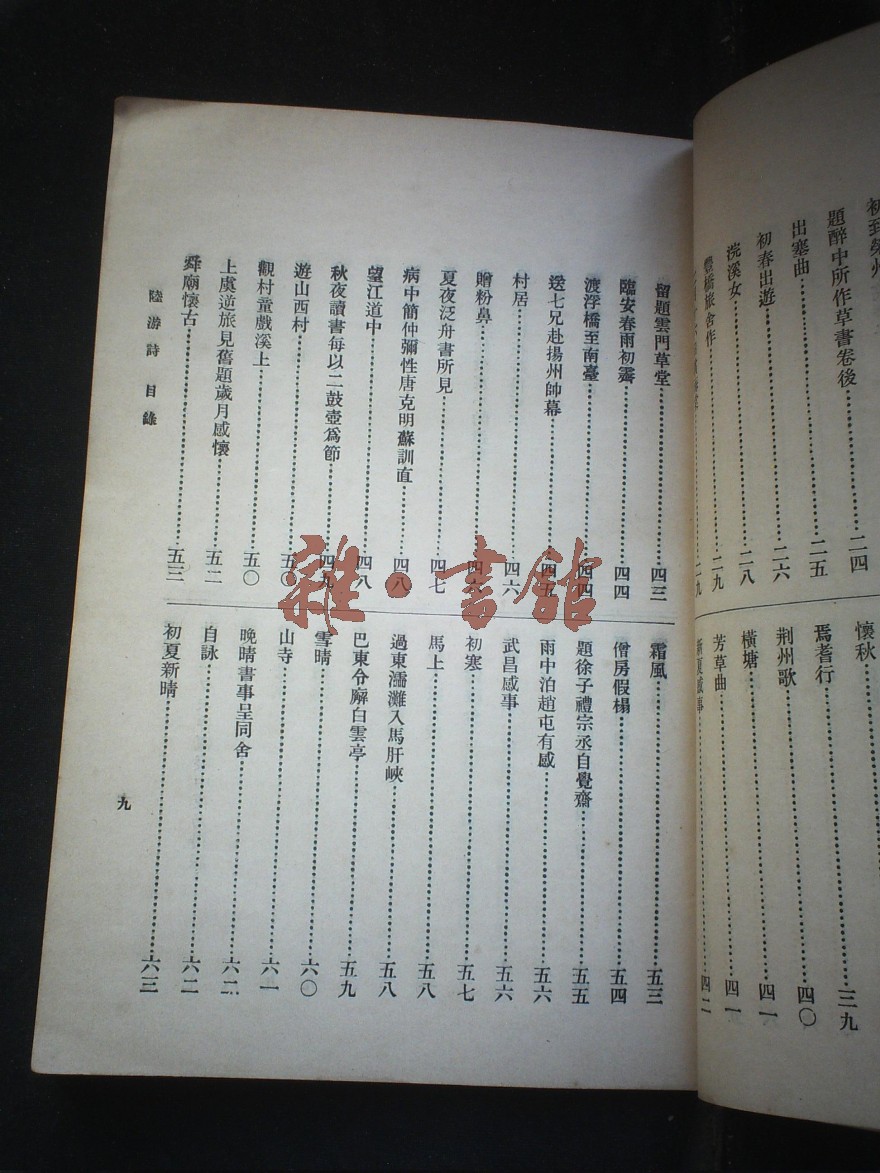 初到榮州
題醉中所作草書卷後……二四
出塞曲……二五
初春出遊……二六
浣溪女……二八
豐橋旅舍作……二九
二九
懷秋
焉耆行……三九
荆州歌……四〇
橫塘……四一
芳草曲……四一
新夏感事……四二
留題雲門草堂……四三
臨安春雨初霽……四四
渡浮橋至南臺……四四
送七兄赴揚州帥幕……四五
村居……四六
贈粉鼻……四六
夏夜泛舟書所見……四七
病中簡仲彌性唐克明蘇訓直……四八
望江道中……四八
秋夜讀書每以二鼓壺爲節……四九
遊山西村……五〇
觀村童戲溪上……五〇
上虞逆旅見舊題歲月感懷……五二
舜廟懷古……五三
霜風……五三
僧房假榻……五四
題徐子禮宗丞自覺齋……五五
雨中泊趙屯有感……五六
武昌感事……五六
初寒……五七
馬上……五八
過東濡灘入馬肝峽……五八
巴東令廨白雲亭……五九
雪晴……六〇
山寺……六一
晚晴書事呈同舍……六二
自詠……六二
初夏新晴……六三
陸游詩 目錄
九
雜·書館